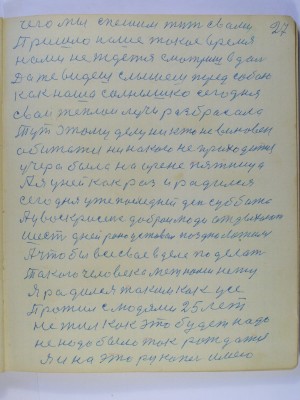 27
чего мы спешим тут с вами
Пришло наше такое время
нам не ждется смотриш вдал
Да не видеш слышеш перед собою
как наша солнышко сегодня
свои теплои лучи разбрасало
Тут этому делу никто не виновен
обижатся ни на кого не приходится
учера была на цене пятница
А я у ней как раз и радился
сегодня уже последней ден суббота
А у воскрисение доброи люди отдыхают
шесть дней работовая
А чтобы все свае в деле поделат
Такого человека между нами нету
Я радился таким как усе
Прожил с людями 25 лет
не жил как это будет надо
не надо было так рождатся
Я и на это руками имею